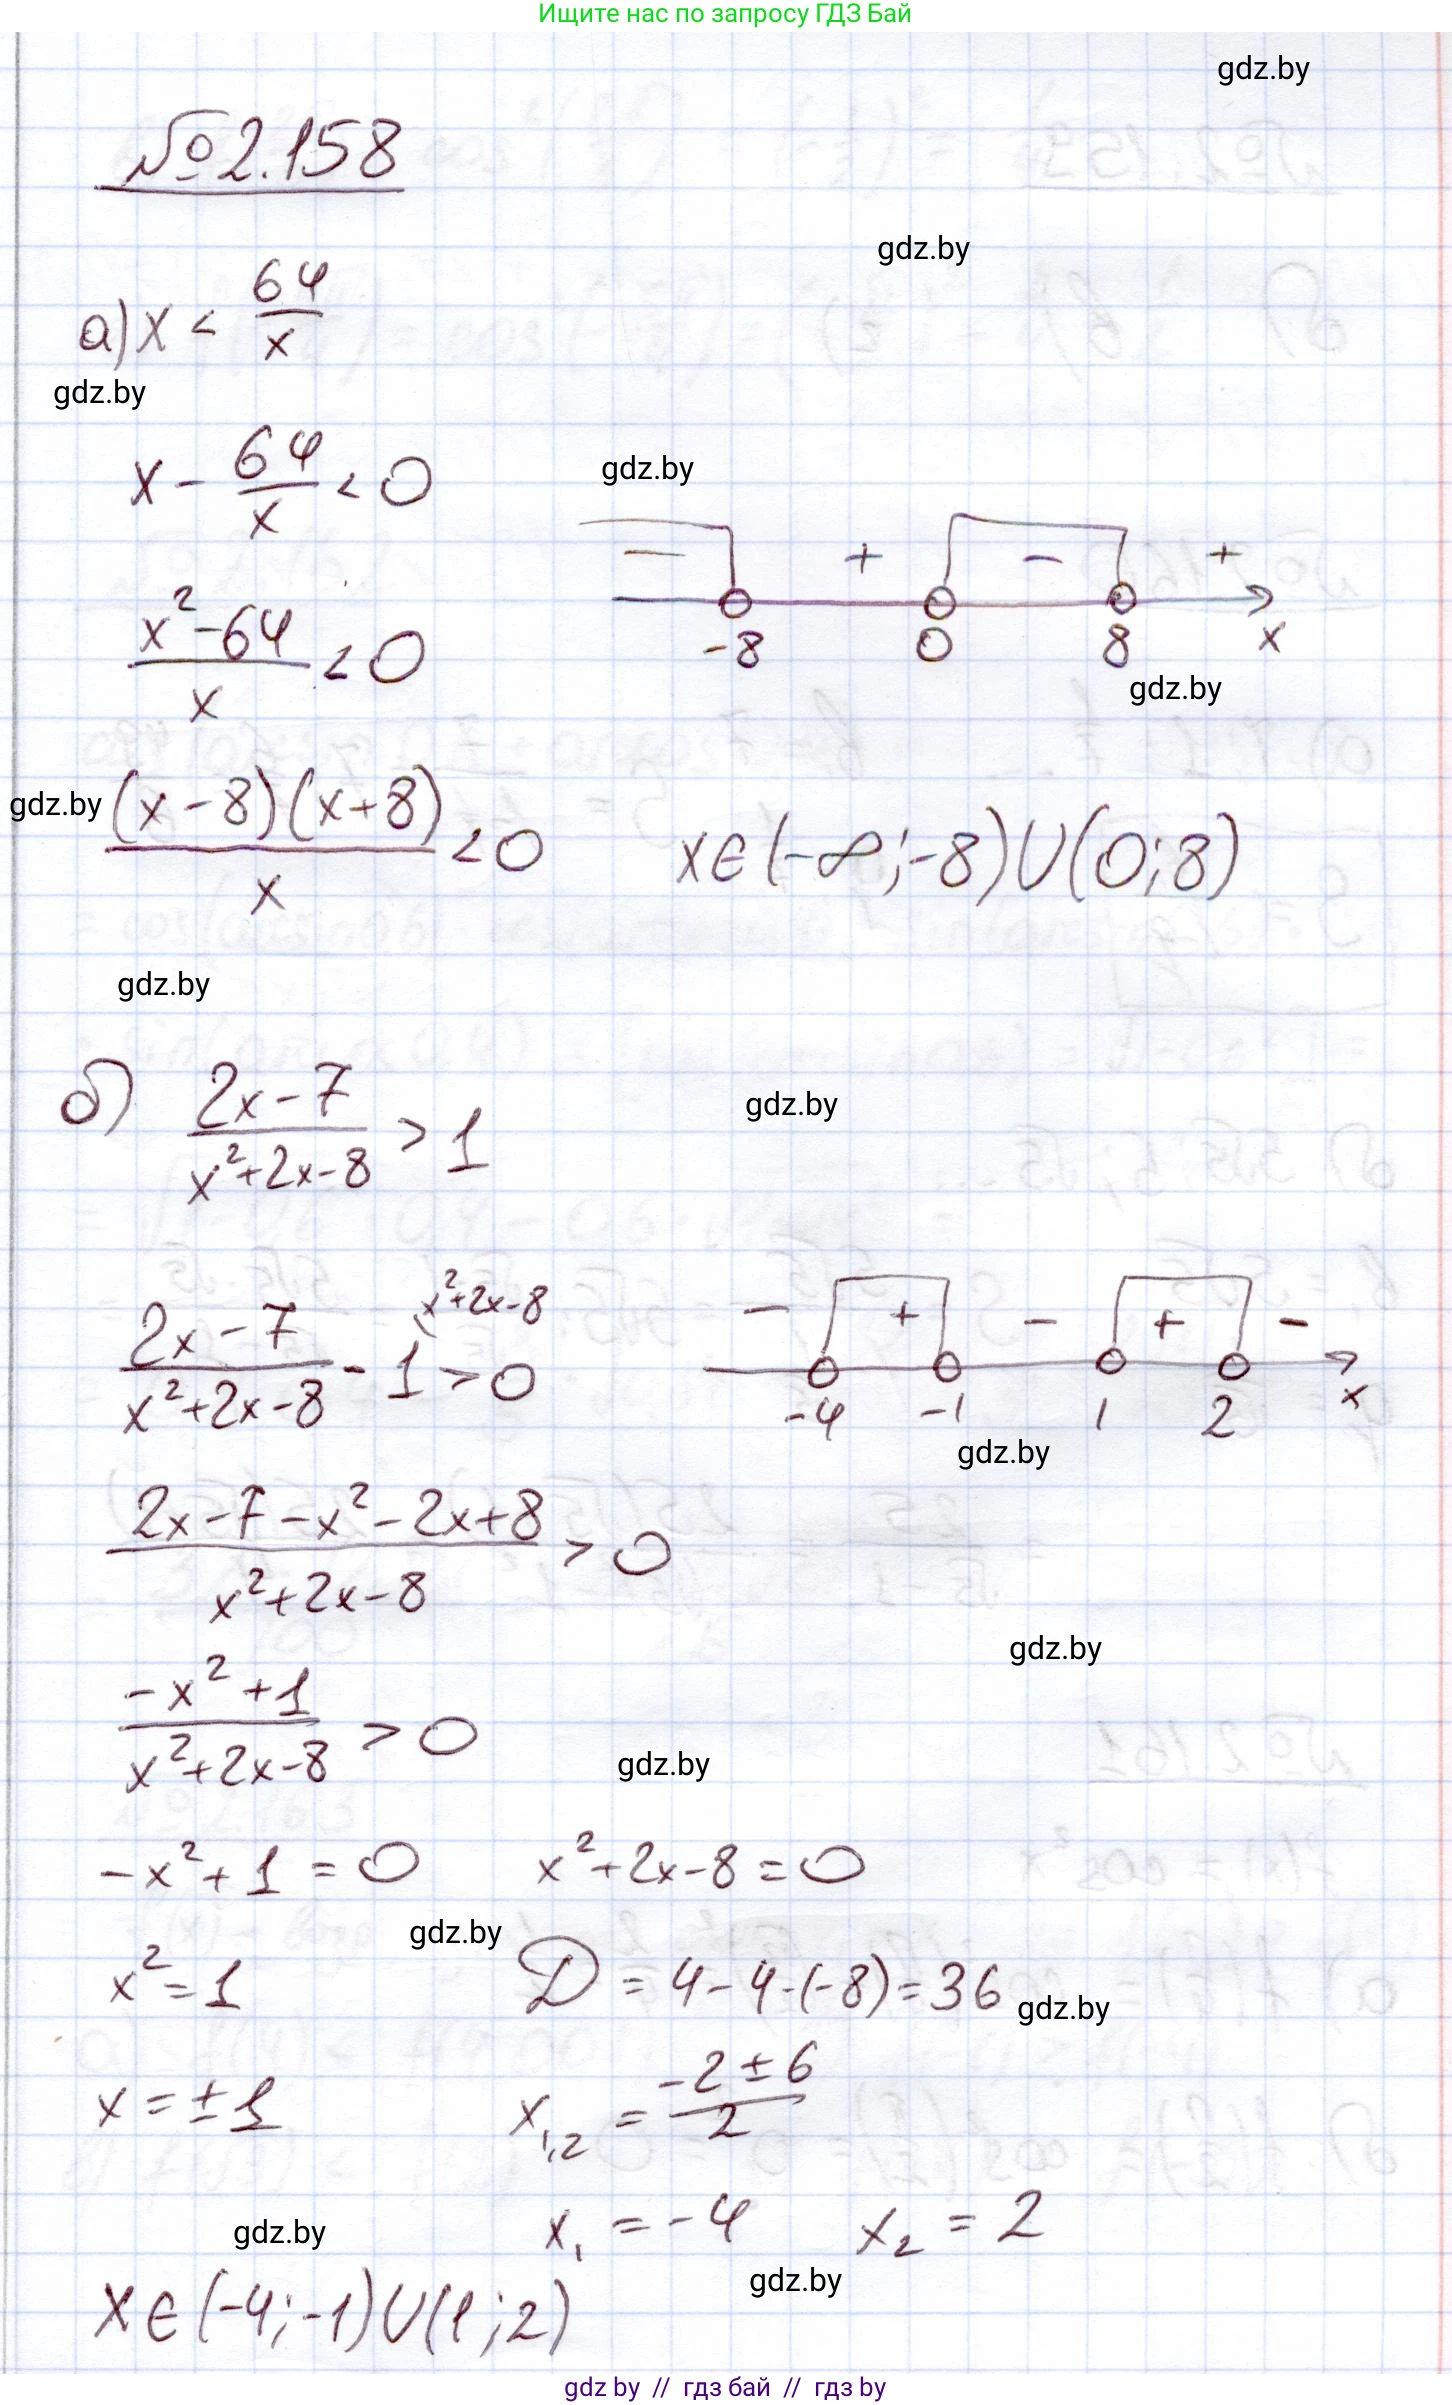 Ищите нас по запросу ГДЗ Бай
gdz.by
№2.158
gdz.by
а) x < 64/x
gdz.by
x - 64/x < 0
gdz.by
- + - +
-8 0 8 x
(x²-64)/x < 0
gdz.by
gdz.by
((x-8)(x+8))/x < 0
x∈(-∞;-8)∪(0;8)
gdz.by
б) (2x-7)/(x²+2x-8) > 1
gdz.by
x²+2x-8
(2x-7)/(x²+2x-8) - 1 > 0
- + - + -
-4 -1 1 2 x
gdz.by
(2x-7-x²-2x+8)/(x²+2x-8) > 0
gdz.by
(-x²+1)/(x²+2x-8) > 0
gdz.by
-x²+1=0 x²+2x-8=0
gdz.by
x²=1 D=4-4·(-8)=36
gdz.by
x=±1 x₁,₂=(-2±6)/2
gdz.by
x₁=-4 x₂=2
gdz.by
x∈(-4;-1)∪(1;2)
gdz by // гдз бай // гдз by